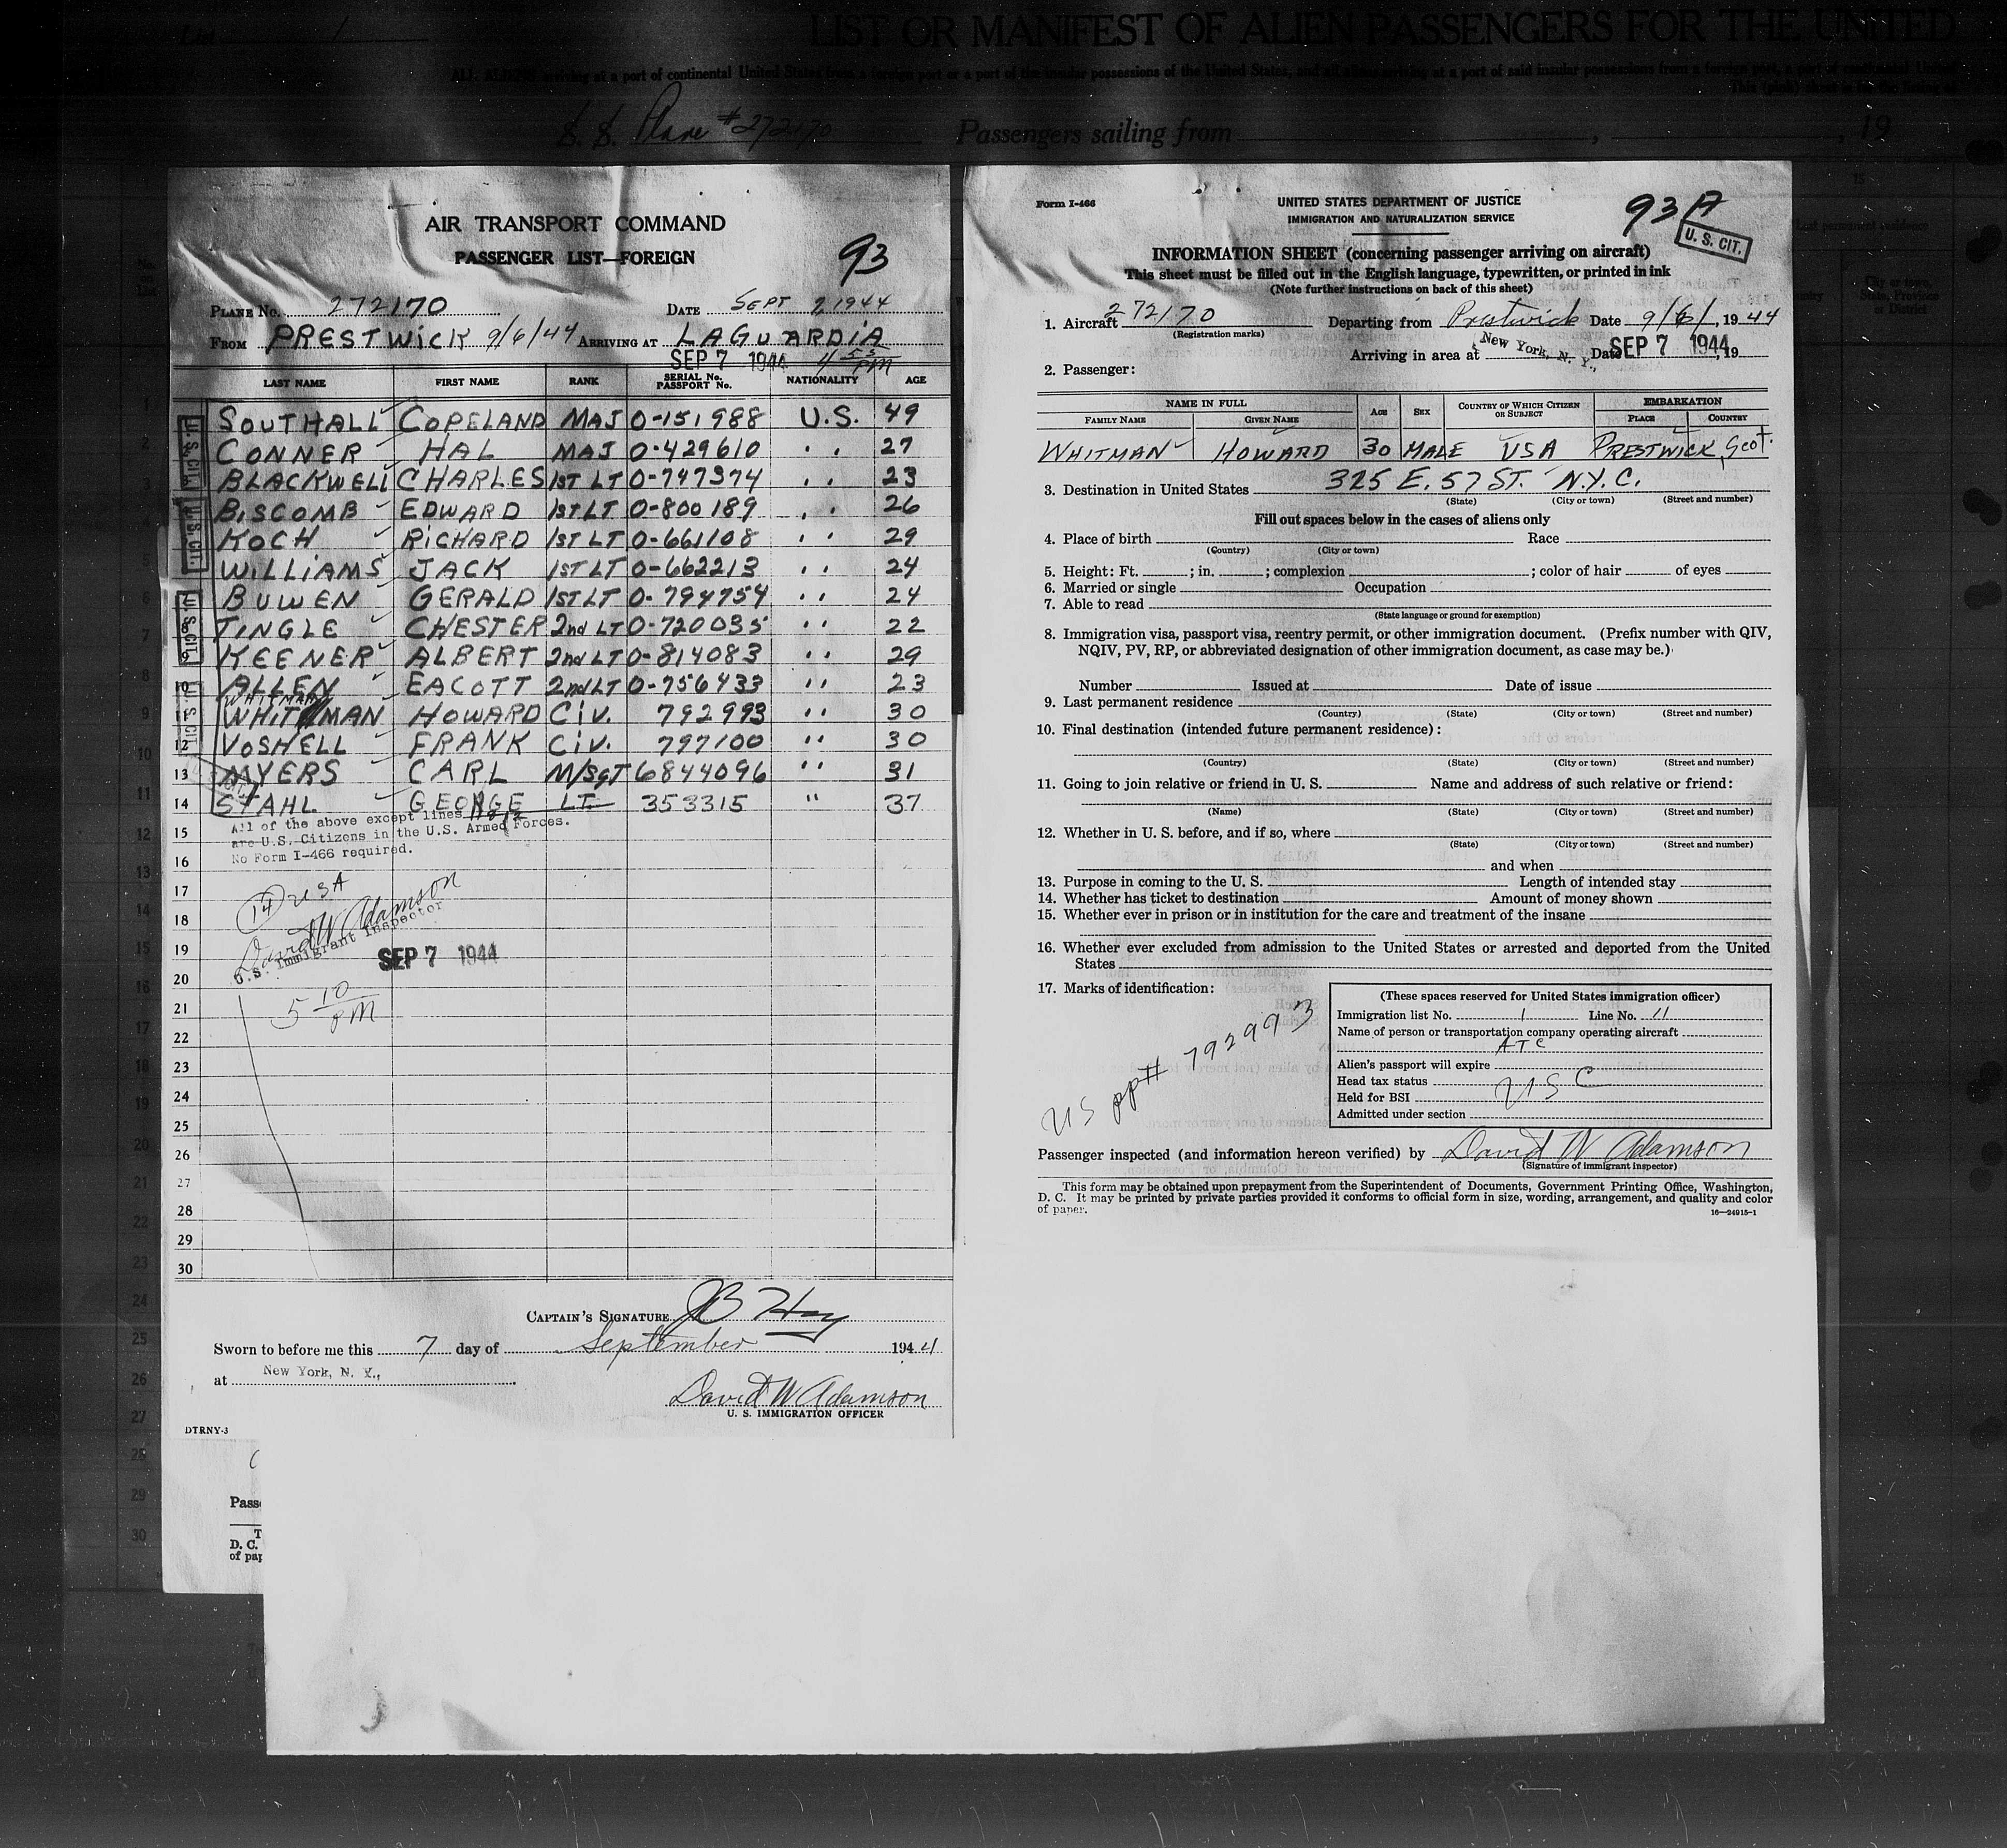 List 1
LIST OR MANIFEST OF ALIEN PASSENGERS FOR THE UNITED
ALL ALIENS arriving at a port of continental United States from a foreign port or a port of the insular possessions of the United States, and all aliens arriving at a port of said insular possessions from a foreign port, a port of continental United
S. S. Plane #272170 Passengers sailing from , 19
AIR TRANSPORT COMMAND
PASSENGER LIST—FOREIGN
93
PLANE NO. 272170 DATE SEPT 7, 1944
FROM PRESTWICK 9/6/44 ARRIVING AT LAGUARDIA
SEP 7 1944 4 55 PM
LAST NAME FIRST NAME RANK SERIAL No. PASSPORT No. NATIONALITY AGE
SOUTHALL COPELAND MAJ O-151988 U.S. 49
CONNER HAL MAJ O-429610 " 27
BLACKWELL CHARLES 1ST LT O-747374 " 23
BISCOMB EDWARD 1ST LT O-800189 " 26
KOCH RICHARD 1ST LT O-661108 " 29
WILLIAMS JACK 1ST LT O-662213 " 24
BUWEN GERALD 1ST LT O-794754 " 24
TINGLE CHESTER 2nd LT O-720035 " 22
KEENER ALBERT 2nd LT O-814083 " 29
10 ALLEN EACOTT 2nd LT O-756433 " 23
WHITMAN
11 WHITMAN HOWARD CIV. 792993 " 30
12 VOSHELL FRANK CIV. 797100 " 30
13 MYERS CARL M/SGT 6844096 " 31
14 STAHL GEORGE LT. 353315 " 37
U.S. CIT.
U.S. CIT.
U.S. CIT.
U.S. CIT.
All of the above except lines 11 & 12
are U.S. Citizens in the U.S. Armed Forces.
No Form I-466 required.
15
16
17
18
19
20
21
22
23
24
25
26
27
28
29
30
14 USA
David W Adamson
U.S. Immigrant Inspector
SEP 7 1944
5 10 PM
CAPTAIN'S SIGNATURE
Sworn to before me this 7 day of September 1944
at New York, N. Y.,
David W Adamson
U. S. IMMIGRATION OFFICER
DTRNY-3
Pass
T
D. C.
of pap
Form I-466
UNITED STATES DEPARTMENT OF JUSTICE
IMMIGRATION AND NATURALIZATION SERVICE
93 A
U. S. CIT.
INFORMATION SHEET (concerning passenger arriving on aircraft)
This sheet must be filled out in the English language, typewritten, or printed in ink
(Note further instructions on back of this sheet)
1. Aircraft 272170 Departing from Prestwick Date 9/6/, 1944
(Registration marks)
Arriving in area at New York, N. Y., Date SEP 7 1944, 19
2. Passenger:
NAME IN FULL AGE SEX COUNTRY OF WHICH CITIZEN OR SUBJECT EMBARKATION
FAMILY NAME GIVEN NAME PLACE COUNTRY
WHITMAN HOWARD 30 MALE USA PRESTWICK, Scot.
3. Destination in United States 325 E. 57 ST. N.Y.C.
(State) (City or town) (Street and number)
Fill out spaces below in the cases of aliens only
4. Place of birth Race
(Country) (City or town)
5. Height: Ft. ; in. ; complexion ; color of hair of eyes
6. Married or single Occupation
7. Able to read
(State language or ground for exemption)
8. Immigration visa, passport visa, reentry permit, or other immigration document. (Prefix number with QIV,
NQIV, PV, RP, or abbreviated designation of other immigration document, as case may be.)
Number Issued at Date of issue
9. Last permanent residence
(Country) (State) (City or town) (Street and number)
10. Final destination (intended future permanent residence):
(Country) (State) (City or town) (Street and number)
11. Going to join relative or friend in U. S. Name and address of such relative or friend:
(Name) (State) (City or town) (Street and number)
12. Whether in U. S. before, and if so, where
(State) (City or town) (Street and number)
and when
13. Purpose in coming to the U. S. Length of intended stay
14. Whether has ticket to destination Amount of money shown
15. Whether ever in prison or in institution for the care and treatment of the insane
16. Whether ever excluded from admission to the United States or arrested and deported from the United
States
17. Marks of identification:
US pp# 792993
(These spaces reserved for United States immigration officer)
Immigration list No. 1 Line No. 11
Name of person or transportation company operating aircraft
ATC
Alien's passport will expire
Head tax status USC
Held for BSI
Admitted under section
Passenger inspected (and information hereon verified) by David W Adamson
(Signature of immigrant inspector)
This form may be obtained upon prepayment from the Superintendent of Documents, Government Printing Office, Washington,
D. C. It may be printed by private parties provided it conforms to official form in size, wording, arrangement, and quality and color
of paper.
16—24915-1